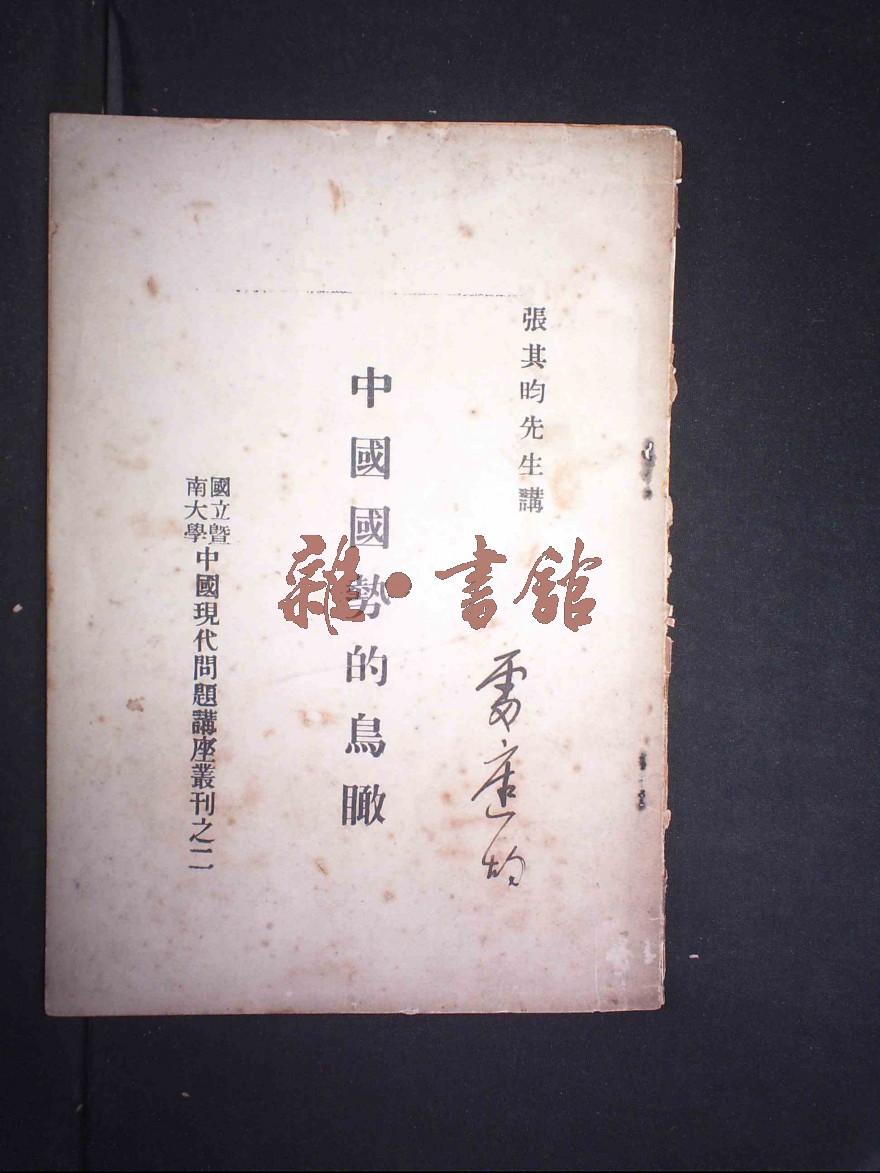 張其昀先生講
中國國勢的鳥瞰
國立暨
南大學
中國現代問題講座叢刊之二
雜·書館